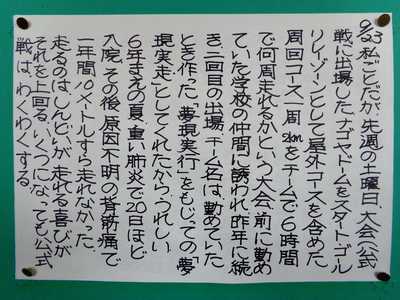 9/23 私ごとだが、先週の土曜日、大会(公式
戦)に出場した。ナゴヤドームをスタート・ゴール
リレーゾーンとして屋外コースを含めた
周回コース一周 5kmをチームで6時間
で何周走れるかという大会。前に勤め
ていた学校の仲間に誘われ、昨年に続
き、二回目の出場。チーム名は、勤めていた
とき作った「夢現実行」をもじっての「夢
現実走」としてくれたから、うれしい。
6年まえの夏、重い肺炎で20日ほど
入院。その後、原因不明の背筋痛で
一年間、10メートルすら走れなかった。
走るのは、しんどいが、走れる喜びが
それを上回る。いくつになっても、公式
戦は、わくわくする。